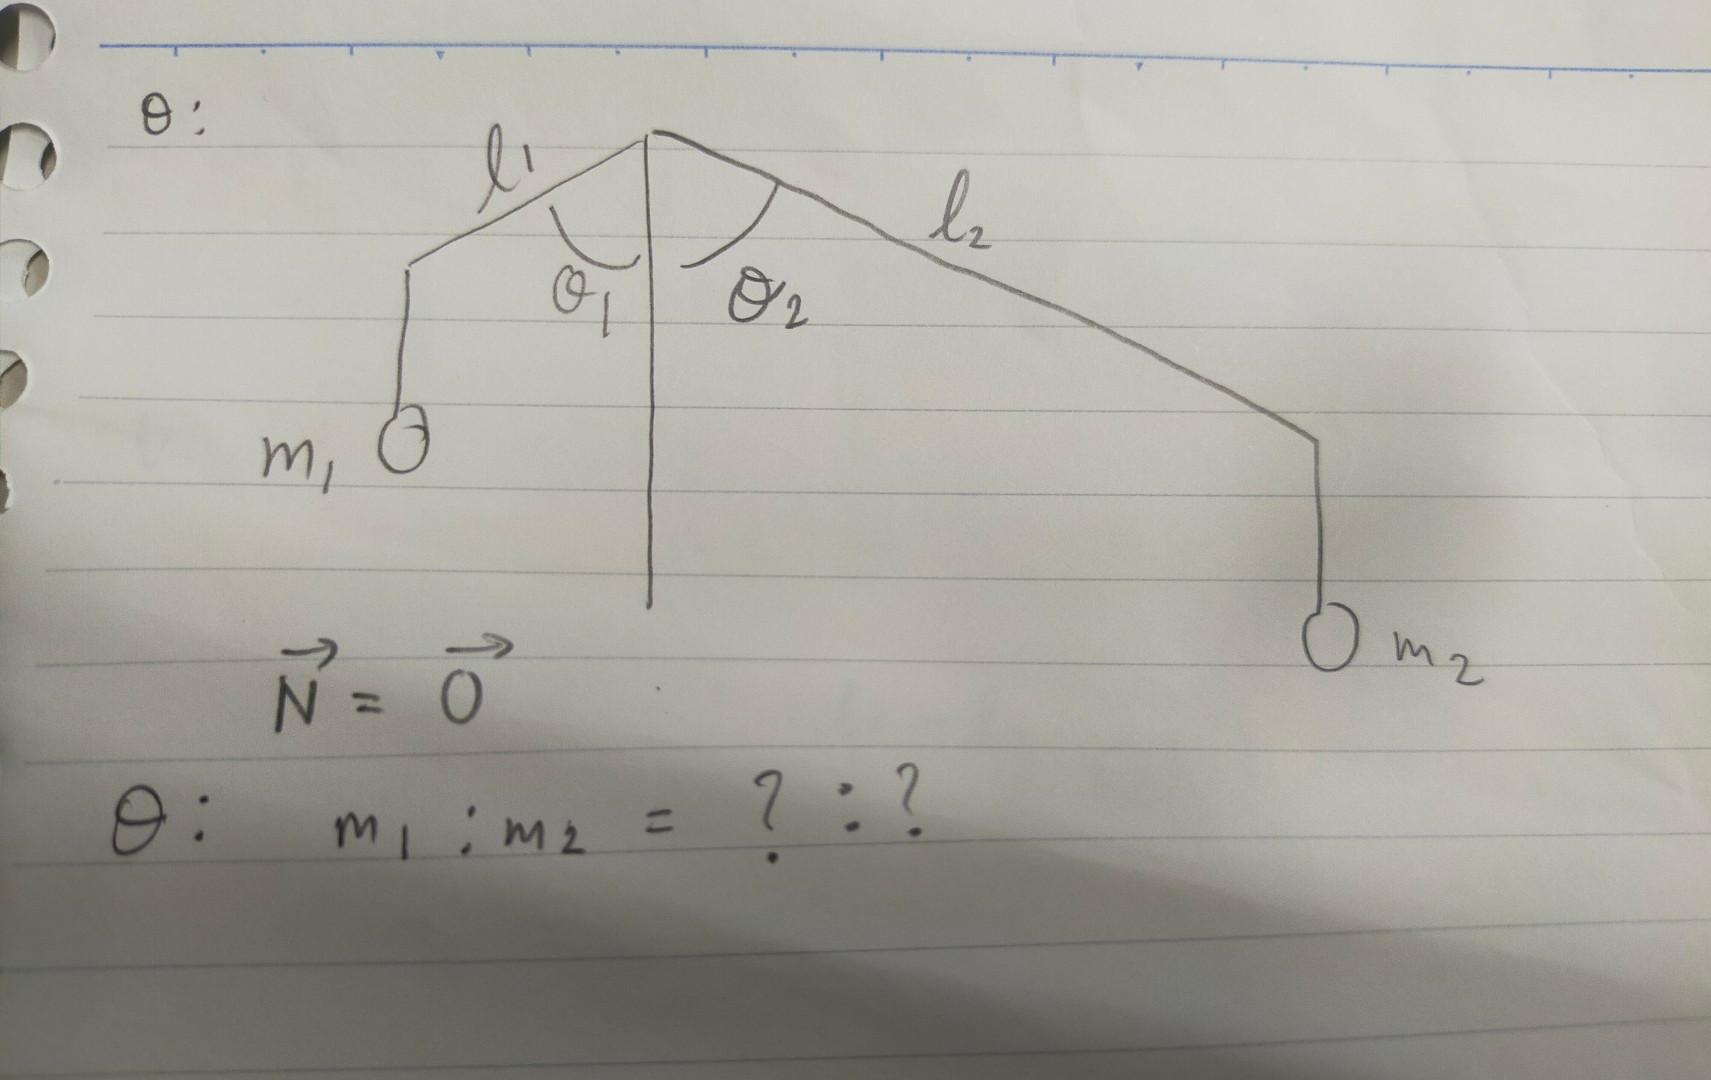 θ:
l1
l2
θ1 θ2
m1
m2
N⃗ = 0⃗
θ: m1 : m2 = ? : ?